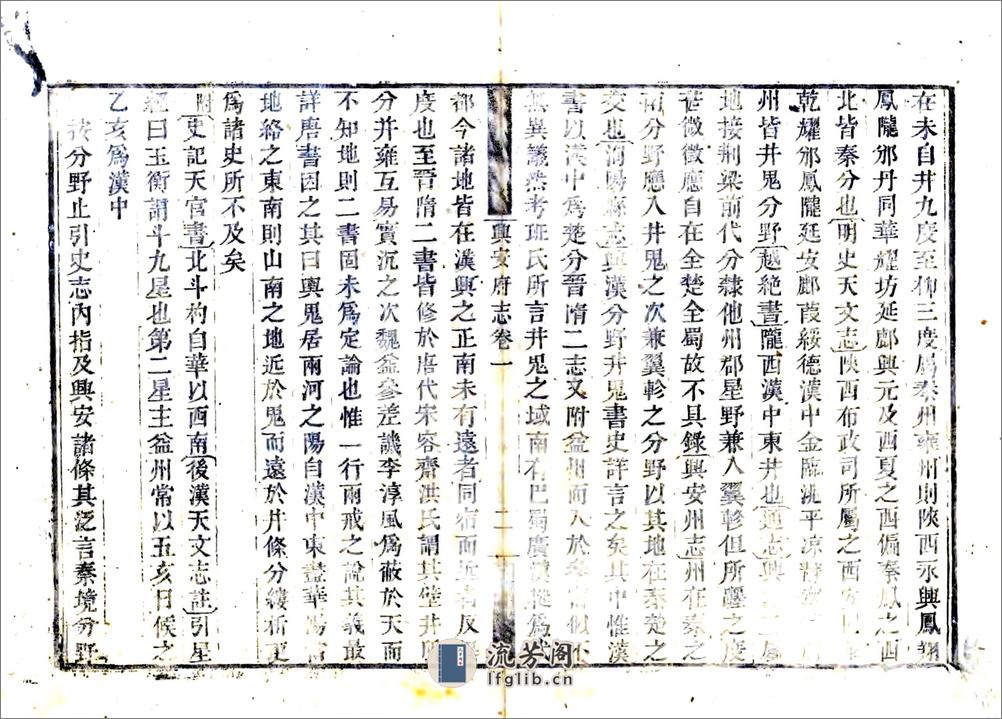 在未自井九度至柳三度屬秦州雍州則陝西永興鳳翔
鳳隴邠丹同華耀坊延鄜興元及西夏之西偏秦鳳之西
北皆秦分也明史天文志陝西布政司所屬之西安
乾耀邠鳳隴延安鄜葭綏德漢中金臨洮平凉
州皆井鬼分野越絶書隴西漢中東井也通志興
地接荆梁前代分隸他州郡星野兼入翼軫但所躔之度
甚微微應自在全楚全蜀故不具錄興安州志州在秦之
分野應入井鬼之次兼翼軫之分野以其地在秦楚之
交也洵陽縣志興漢分野井鬼書史詳言之矣其中惟漢
書以漢中爲楚分晉隋二志文附益州而入於
無異議然考班氏所言井鬼之域南有巴蜀廣漢犍爲武
興安府志卷一
二
都今諸地皆在漢興之正南未有遠者同宿而近者反
度也至晉隋二書皆修於唐代宋容齋洪氏謂其壁井
分并雍互易實沉之次魏益參差譏李淳風爲蔽於天而
不知地則二書固未爲定論也惟一行兩戒之說其義最
詳唐書因之其曰輿鬼居兩河之陽自漢中東盡華陽
地絡之東南則山南之地近於鬼而遠於井條分縷析更
爲諸史所不及矣
附史記天官書北斗杓自華以西南後漢天文志註引星
經曰玉衡謂斗九星也第二星主益州常以五亥日候之
乙亥爲漢中
按分野止引史志內指及興安諸條其泛言秦境分野
流芳阁
lfglib.cn